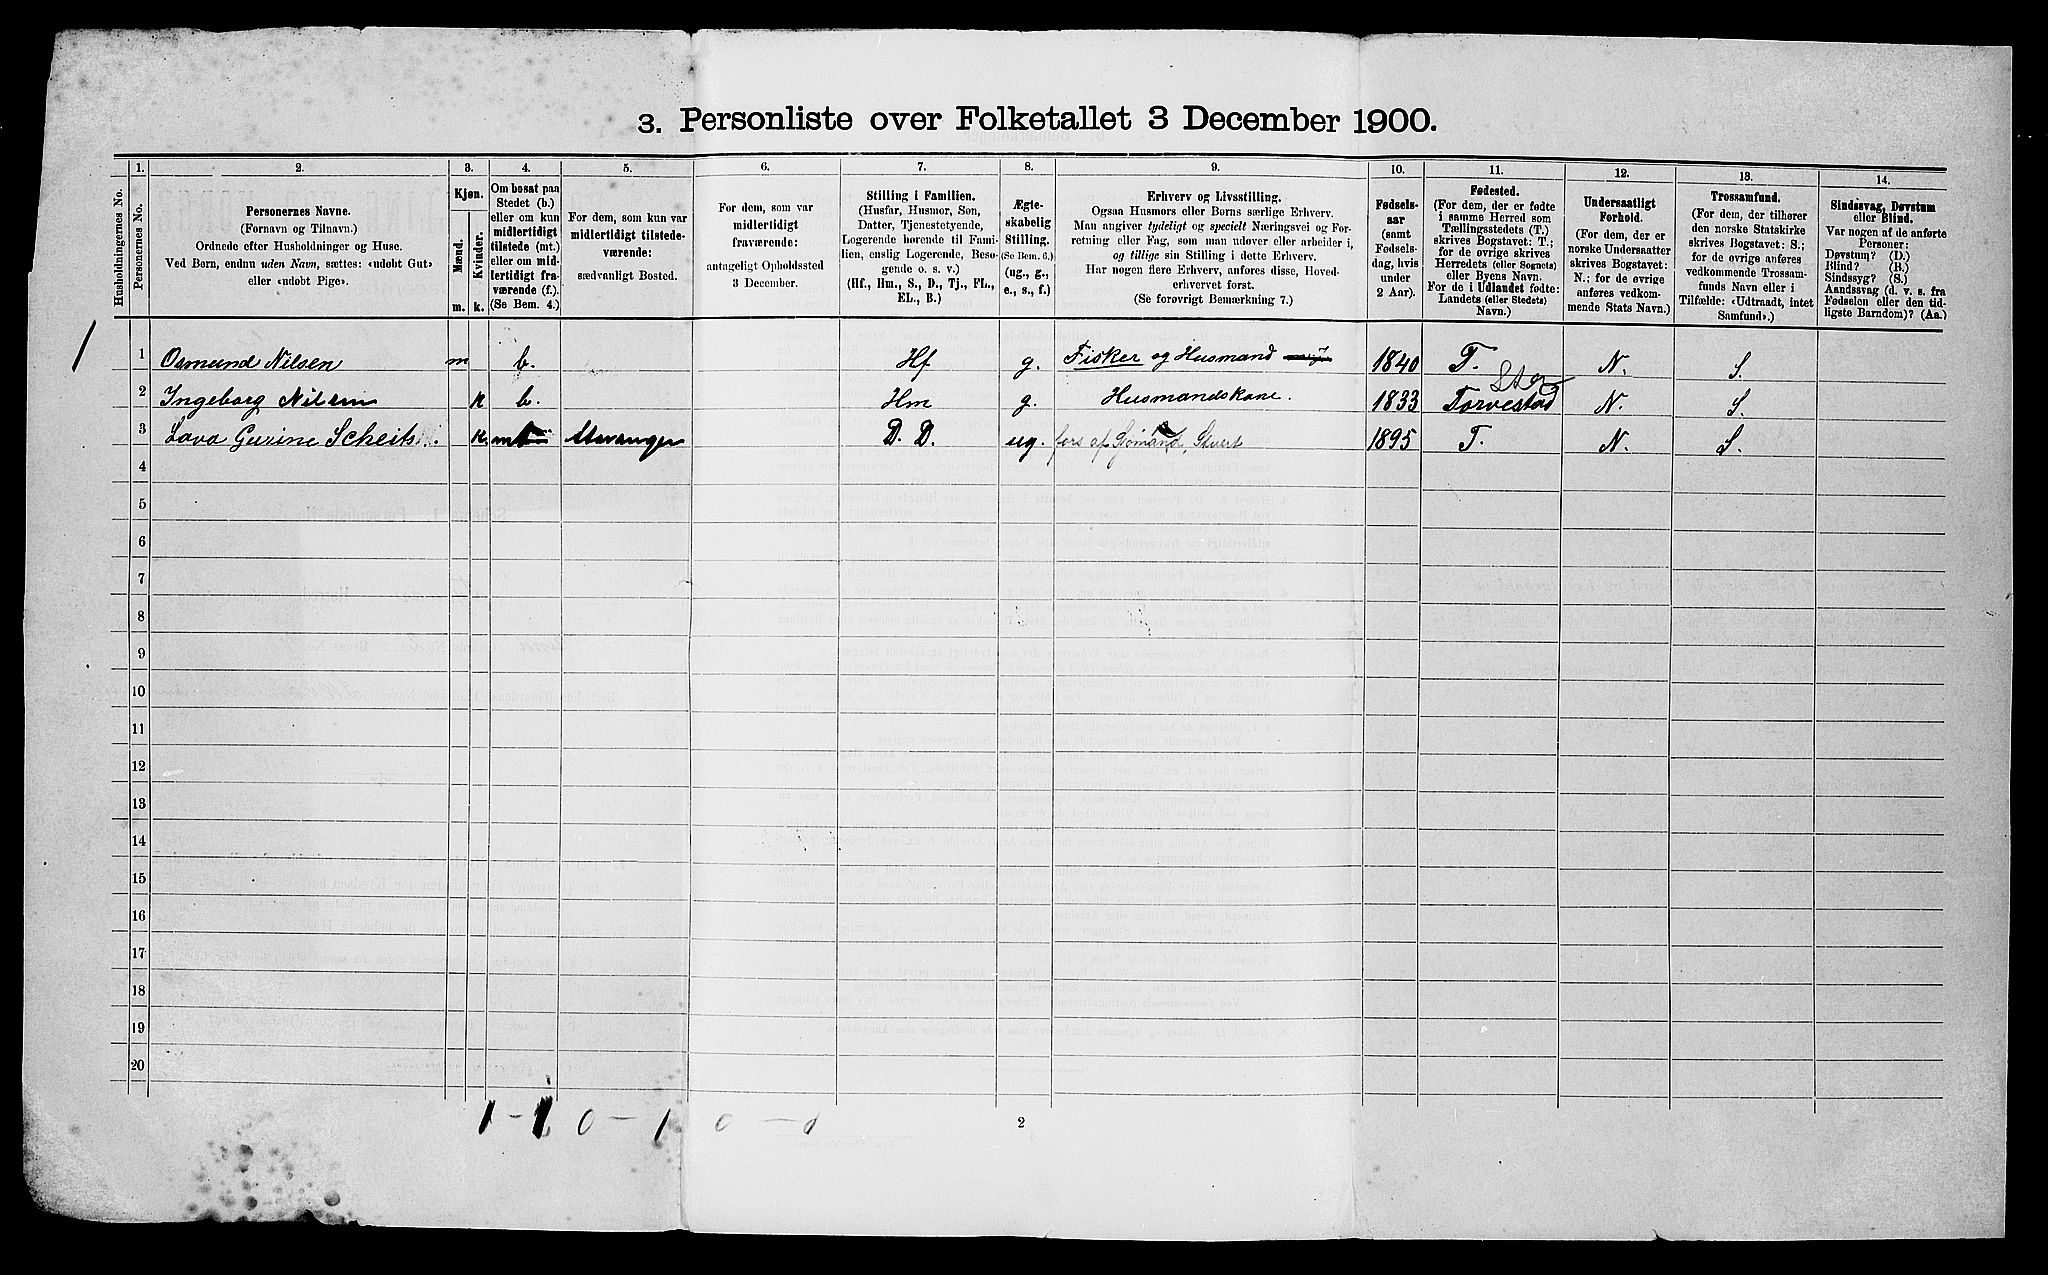 3. Personliste over Folketallet 3 December 1900.
1. 2. 3. 4. 5. 6. 7. 8. 9. 10. 11. 12. 13. 14.
Husholdningernes No.
Personernes No.
Personernes Navne.
(Fornavn og Tilnavn.)
Ordnede efter Husholdninger og Huse.
Ved Børn, endnu uden Navn, sættes: «udøbt Gut»
eller «udøbt Pige».
Kjøn.
Mænd.
Kvinder.
m. k.
Om bosat paa
Stedet (b.)
eller om kun
midlertidigt
tilstede (mt.)
eller om mid-
lertidigt fra-
værende (f.)
(Se Bem. 4.)
For dem, som kun var
midlertidigt tilstede-
værende:
sædvanligt Bosted.
For dem, som var
midlertidigt
fraværende:
antageligt Opholdssted
3 December.
Stilling i Familien.
(Husfar, Husmor, Søn,
Datter, Tjenestetyende,
Logerende hørende til Fami-
lien, enslig Logerende, Besø-
gende o. s. v.)
(Hf., Hm., S., D., Tj., FL.,
EL., B.)
Ægte-
skabelig
Stilling.
(Se Bem. 6.)
(ug., g.,
e., s., f.)
Erhverv og Livsstilling.
Ogsaa Husmors eller Børns særlige Erhverv.
Man angiver tydeligt og specielt Næringsvei og For-
retning eller Fag, som man udøver eller arbeider i,
og tillige sin Stilling i dette Erhverv.
Har nogen flere Erhverv, anføres disse, Hoved-
erhvervet først.
(Se forøvrigt Bemærkning 7.)
Fødsels-
aar
(samt
Fødsels-
dag, hvis
under
2 Aar).
Fødested.
(For dem, der er fødte
i samme Herred som
Tællingsstedets (T.)
skrives Bogstavet: T.;
for de øvrige skrives
Herredets (eller Sognets)
eller Byens Navn.
For de i Udlandet fødte:
Landets (eller Stedets)
Navn.)
Undersaatligt
Forhold.
(For dem, der er
norske Undersaatter
skrives Bogstavet:
N.; for de øvrige
anføres vedkom-
mende Stats Navn.)
Trossamfund.
(For dem, der tilhører
den norske Statskirke
skrives Bogstavet: S.;
for de øvrige anføres
vedkommende Trossam-
funds Navn eller i
Tilfælde: «Udtraadt, intet
Samfund».)
Sindssvag, Døvstum
eller Blind.
Var nogen af de anførte
Personer:
Døvstum? (D.)
Blind? (B.)
Sindssyg? (S.)
Aandssvag (d. v. s. fra
Fødselen eller den tid-
ligste Barndom)? (Aa.)
1 1 Osmund Nilsen m b. Hf g. Fisker og Husmand 1840 T. N. S.
2 Ingeborg Nilsen k b. Hm g. Husmandskone. 1833 Torvestad Stg N. S.
3 Lava Gurine Scheits k. mt Stavanger D. D. ug. fors af Sømand, Stuert 1895 T. N. S.
4
5
6
7
8
9
10
11
12
13
14
15
16
17
18
19
20
1 - 1 0 - 1 0 - 1
2